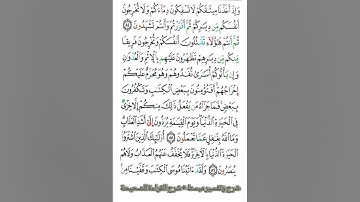 وَإِذْ أَخَذْنَا مِيثَٰقَكُمْ لَا تَسْفِكُونَ دِمَآءَكُمْ وَلَا تُخْرِجُونَ
أَنفُسَكُم مِّن دِيَٰرِكُمْ ثُمَّ أَقْرَرْتُمْ وَأَنتُمْ تَشْهَدُونَ
ثُمَّ أَنتُمْ هَٰٓؤُلَآءِ تَقْتُلُونَ أَنفُسَكُمْ وَتُخْرِجُونَ فَرِيقًا
مِّنكُم مِّن دِيَٰرِهِمْ تَظَٰهَرُونَ عَلَيْهِم بِٱلْإِثْمِ وَٱلْعُدْوَٰنِ
وَإِن يَأْتُوكُمْ أُسَٰرَىٰ تُفَٰدُوهُمْ وَهُوَ مُحَرَّمٌ عَلَيْكُمْ
إِخْرَاجُهُمْ أَفَتُؤْمِنُونَ بِبَعْضِ ٱلْكِتَٰبِ وَتَكْفُرُونَ
بِبَعْضٍ فَمَا جَزَآءُ مَن يَفْعَلُ ذَٰلِكَ مِنكُمْ إِلَّا خِزْىٌ
فِى ٱلْحَيَوٰةِ ٱلدُّنْيَا وَيَوْمَ ٱلْقِيَٰمَةِ يُرَدُّونَ إِلَىٰٓ أَشَدِّ ٱلْعَذَابِ
وَمَا ٱللَّهُ بِغَٰفِلٍ عَمَّا تَعْمَلُونَ أُو۟لَٰٓئِكَ ٱلَّذِينَ ٱشْتَرَوُا۟
ٱلْحَيَوٰةَ ٱلدُّنْيَا بِٱلْءَاخِرَةِ فَلَا يُخَفَّفُ عَنْهُمُ ٱلْعَذَابُ وَلَا هُمْ
يُنصَرُونَ وَلَقَدْ ءَاتَيْنَا مُوسَى ٱلْكِتَٰبَ وَقَفَّيْنَا مِنۢ